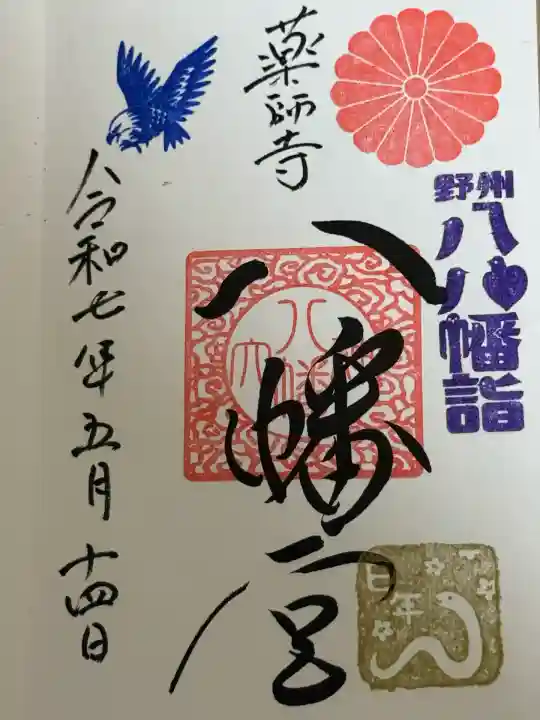 野州
八八幡詣
薬師寺
八幡宮
八幡
巳年
令和七年五月十四日